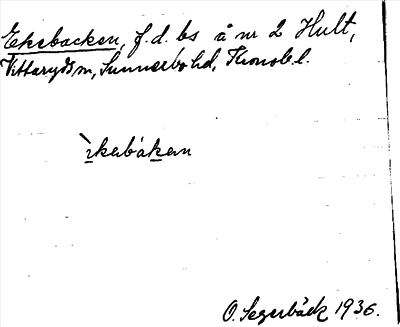 Ekebacken, f.d. bs å nr 2 Hult,
Vittaryds sn, Sunnerbo hd, Kronob. l.
ìkebákan
O. Segerbäck 1936.